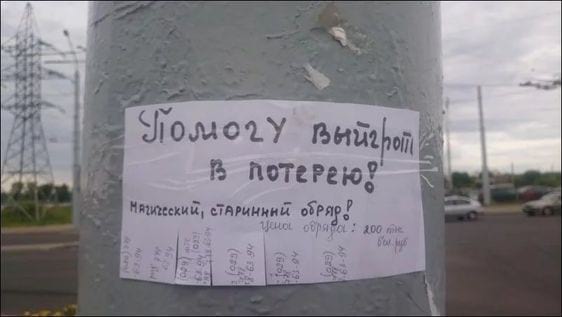 Помогу выйграт
в лотерею!
Магический, старинный обряд!
Цена обряда: 200 тыс.
бел. руб
(029) (029) (029) (029)
63-94 63-94 63-94 63-94